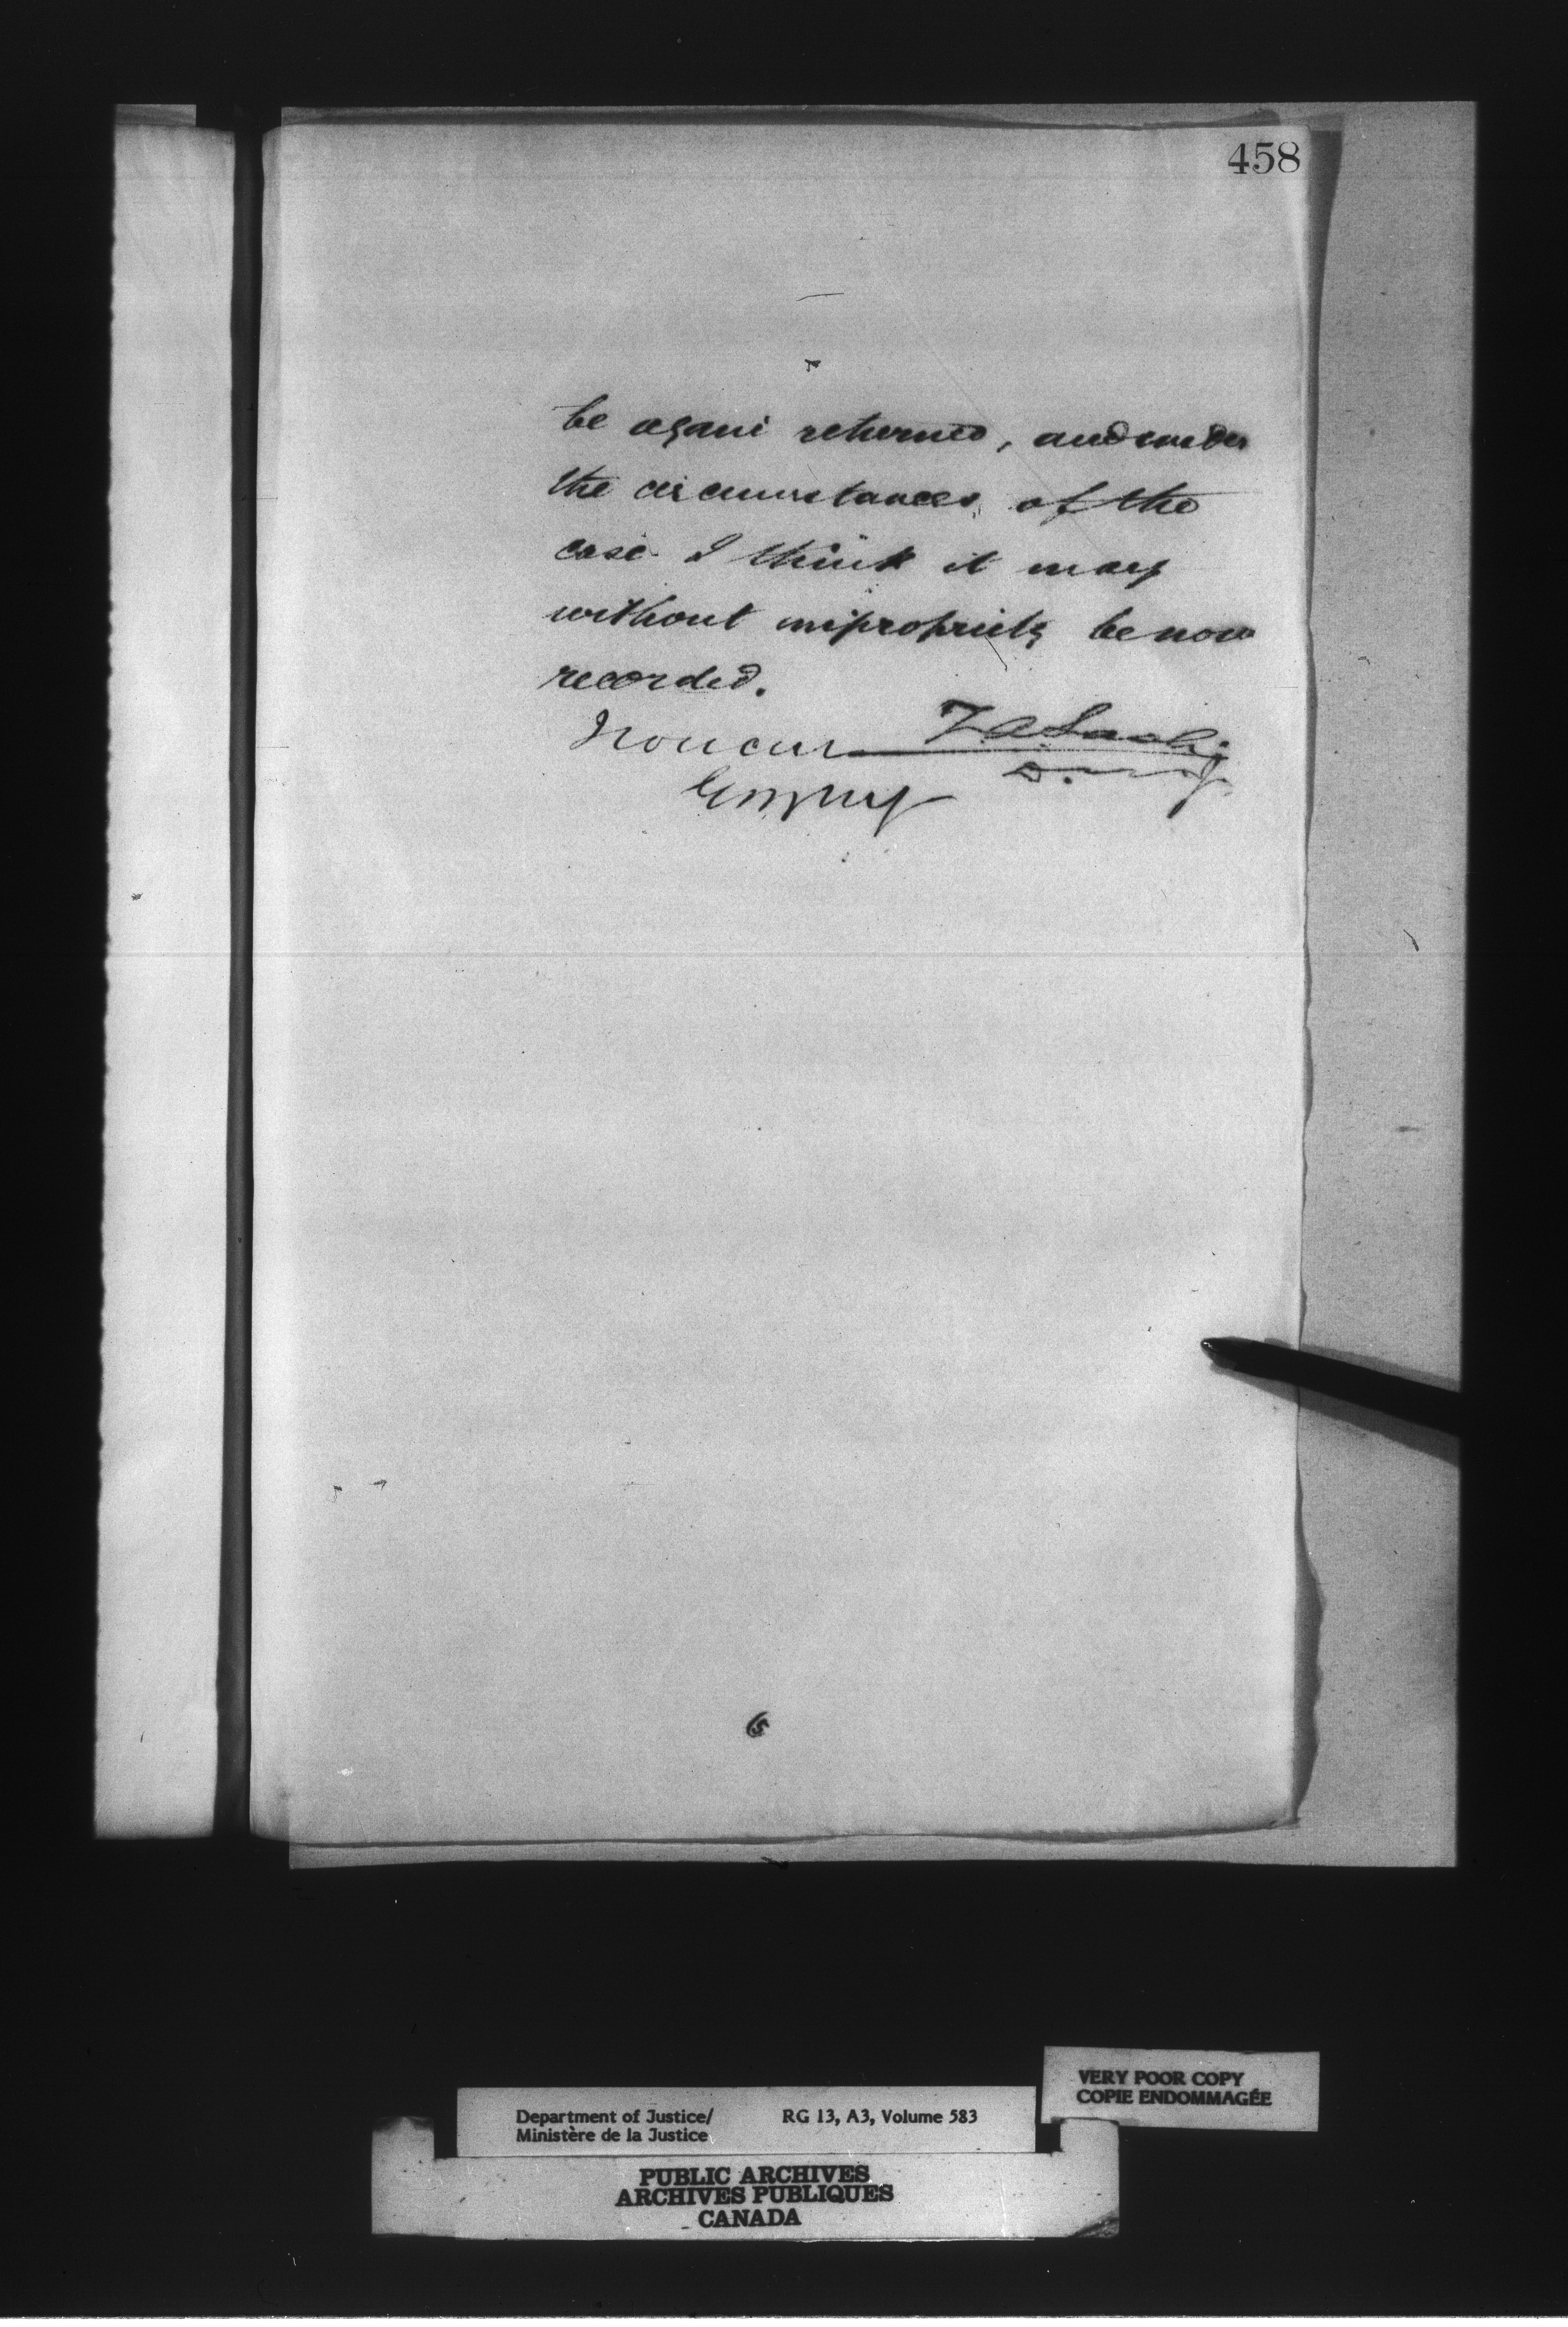 458
be again returned, and under
the circumstances, of the
case I think it may
without impropriety be now
recorded.
I concur
Z A Lash
D.
VERY POOR COPY
COPIE ENDOMMAGÉE
Department of Justice/
Ministère de la Justice
RG 13, A3, Volume 583
PUBLIC ARCHIVES
ARCHIVES PUBLIQUES
CANADA